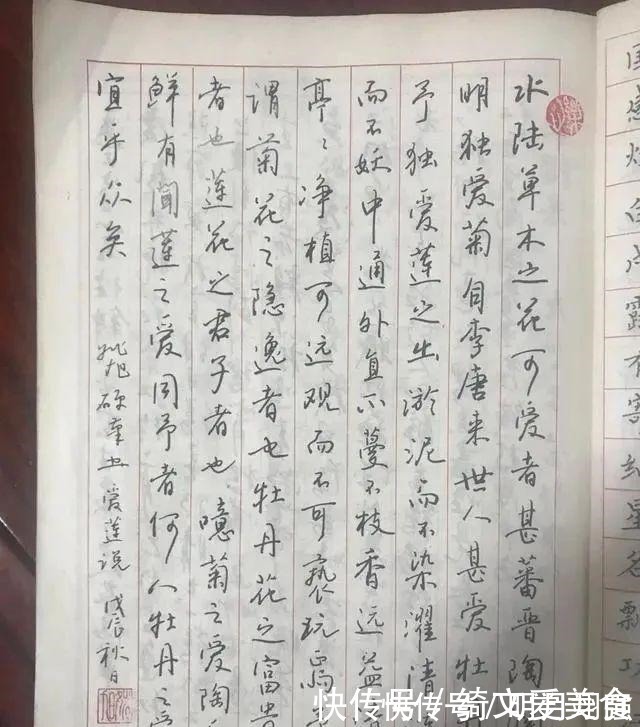 水陆草木之花可爱者甚蕃晋陶
明独爱菊自李唐来世人甚爱牡
予独爱莲之出淤泥而不染濯清
而不妖中通外直不蔓不枝香远益
亭〻净植可远观而不可亵玩焉
谓菊花之隐逸者也牡丹花之富贵
者也莲花之君子者也噫菊之爱陶
鲜有闻莲之爱同予者何人牡丹之爱
宜乎众矣 姚旭硬笔书爱莲说 戊辰秋日
快传号/
美食